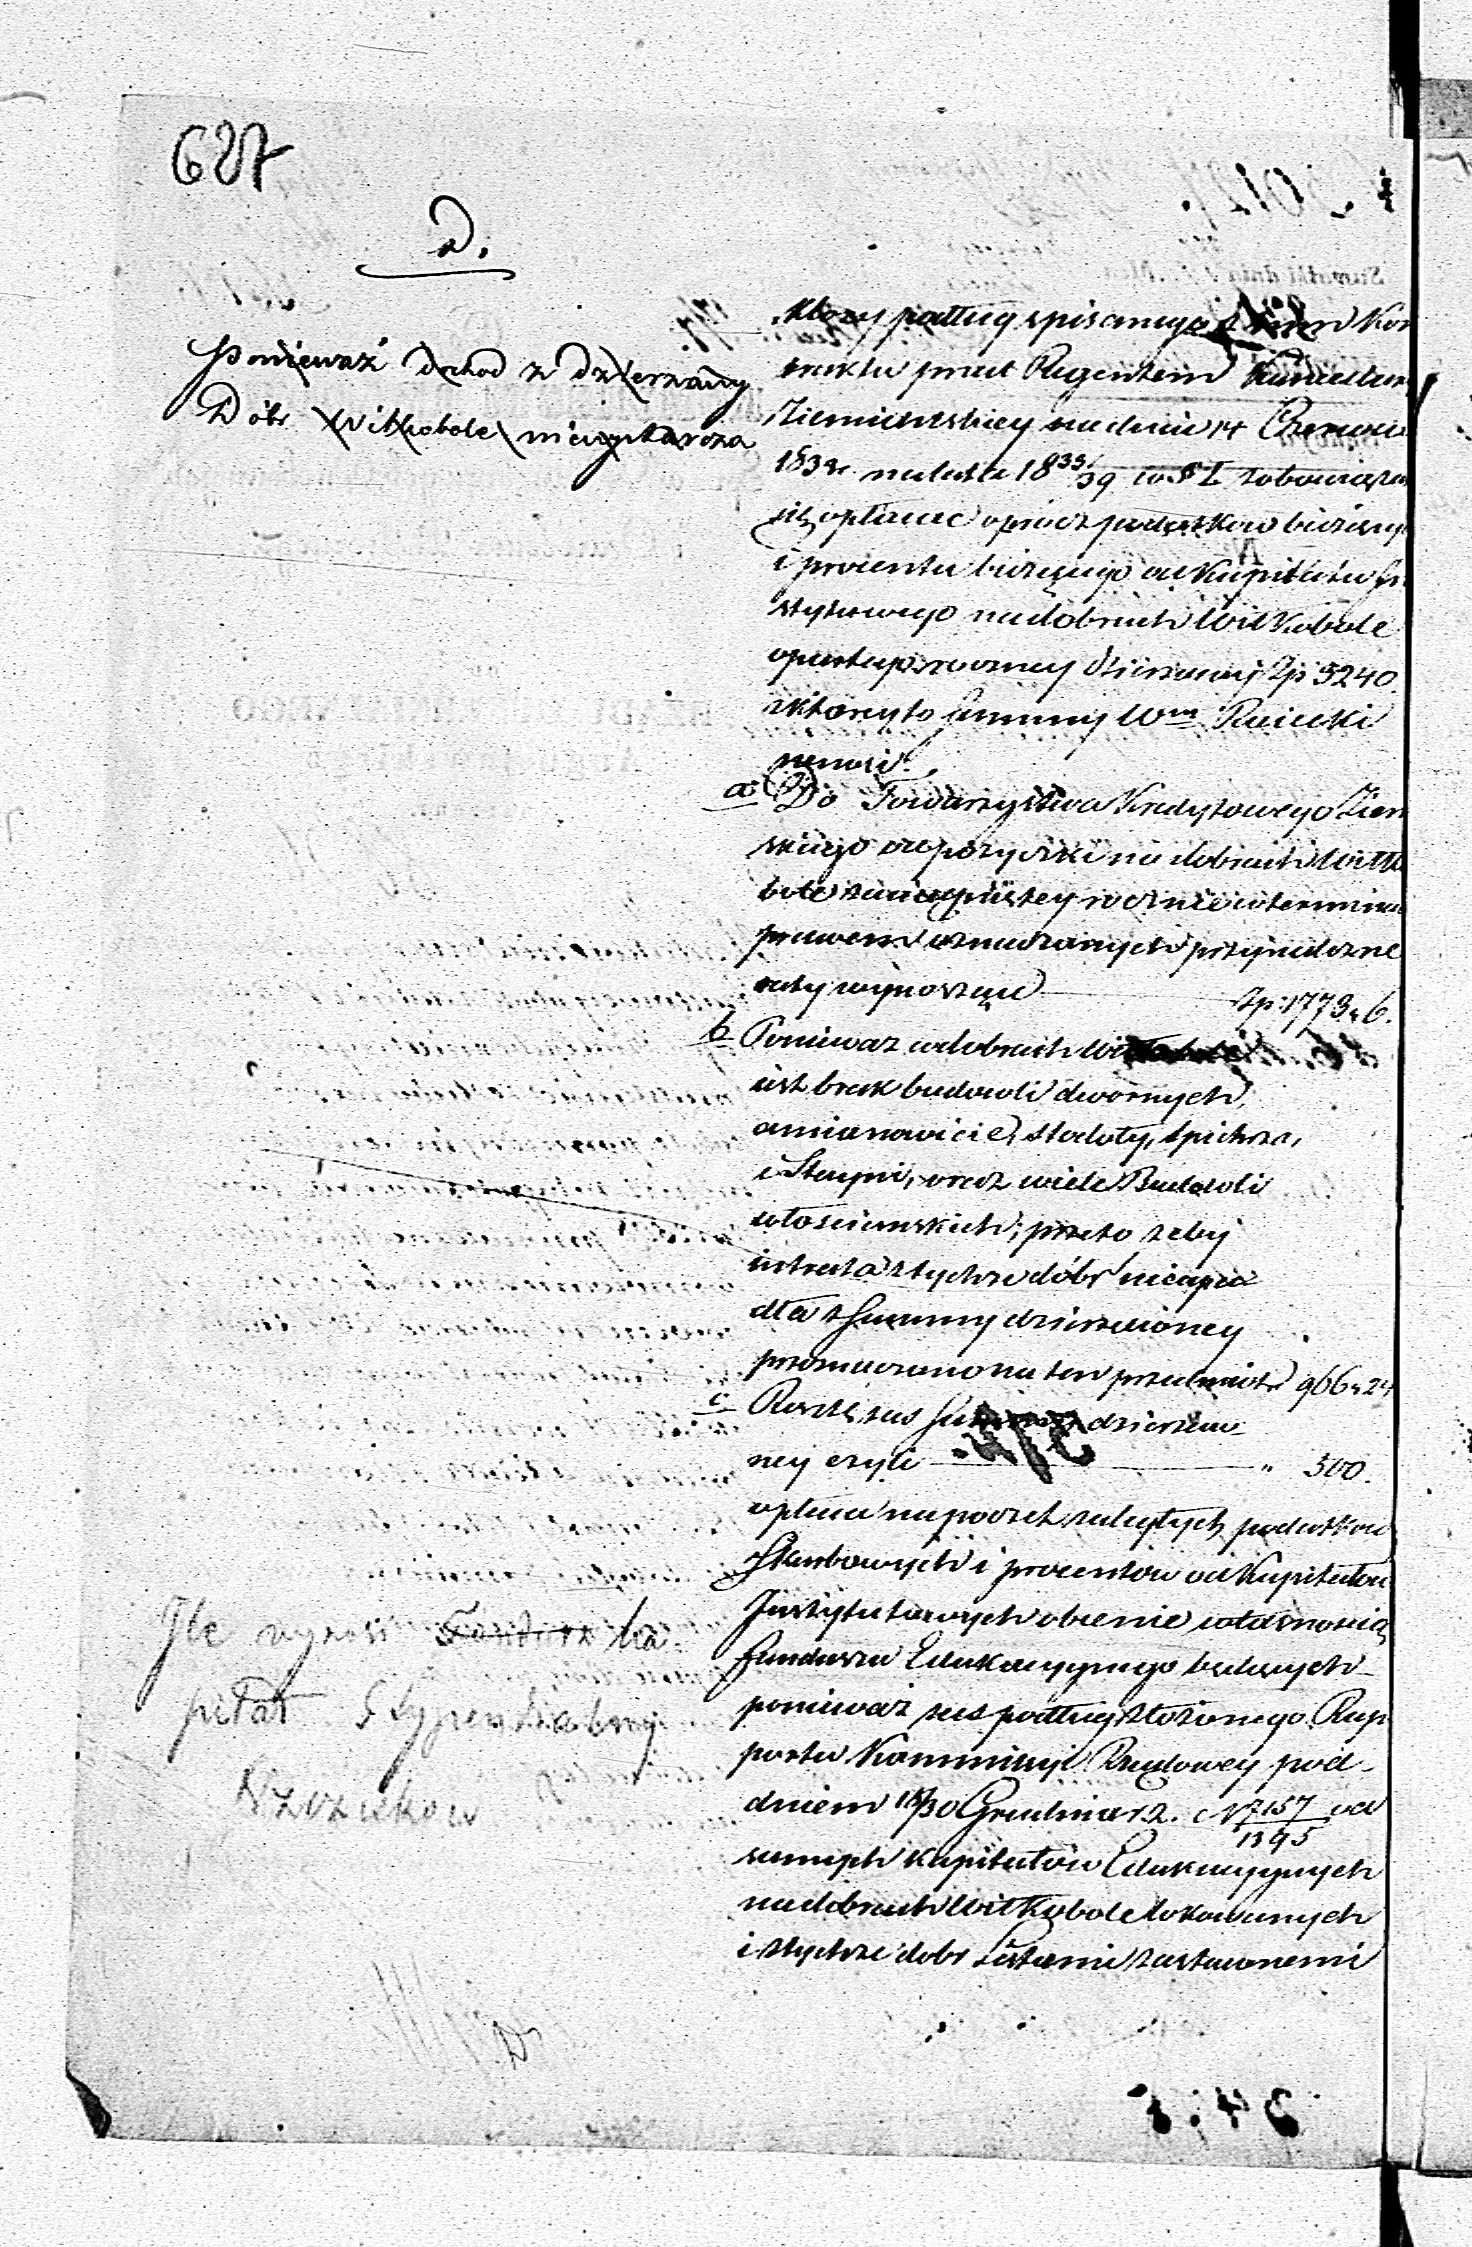 627
D.
Ponieważ dochod z dzierzawy
Dóbr Witkobole niewystarcza
który podług spisanego z nim Kon
traktu przed Regentem Kancellary
Ziemiańskiey na dniu 14 Czerwca
1838 r. na lata 1838/39 w § 2 zobowiązał
się opłacac oprócz podatkow bieżących
i procentu bieżącego od Kapitału In
stytutowego na dobrach Witkobole
rocznej dzierzawy Zp 3240.
z ktorey to summy Wny Rciecki
wnosi.
a Do Towarzystwa Kredytowego Ziem
skiego od pożyczki na dobrach Witko
bole zaciągniętey rocznie w terminach
prawem oznaczonych przypadaiące
raty wynoszące Zp: 1773 „ 6.
b Ponieważ w dobrach
iest brak budowli dwornych,
a mianowicie, stodoły, spichrza,
i Stayni, oraz wiele Budowli
włościanskich; przeto zeby
intrata z tychże dóbr nieupa
dła z Summy dzierzawney
przeznaczono na ten przedmiot 966 „ 24
c Resztę zas Summy dzierzaw
ney czyli „ 500.
opłaca na poczet zaległych podatkow
Skarbowych i procentów od Kapitałow
Instytutowych obecnie własnością
funduszu Edukacyynego będących
ponieważ zas podług złożonego Rap
portu Kommissyi Rządowey pod
dniem 18/30 Grudnia r. z. N 7157/1395 od
samych kapitałów Edukacyynych
na dobrach Witkobole lokowanych
i z tychże dobr Listami zastawnemi
Ile wynosi Fundusz ka
pitał Stypendialny